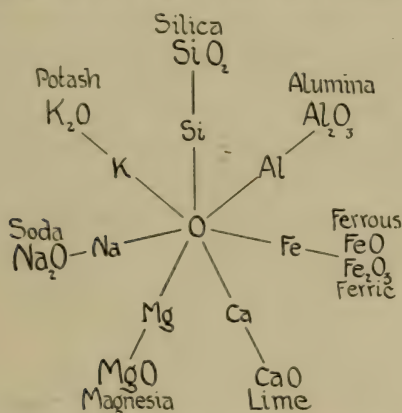 Silica
SiO₂
Potash
K₂O
Alumina
Al₂O₃
Si
K
Al
Soda
Na₂O
Na
O
Fe
Ferrous
FeO
Fe₂O₃
Ferric
Mg
Ca
MgO
Magnesia
CaO
Lime